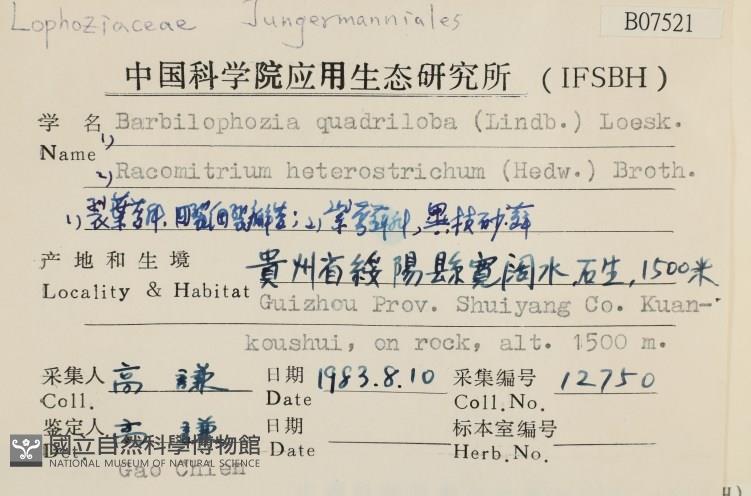 Lophoziaceae Jungermanniales
B07521
中国科学院应用生态研究所 (IFSBH)
学 名 Barbilophozia quadriloba (Lindb.) Loesk.
Name 1)
2) Racomitrium heterostrichum (Hedw.) Broth.
1) 裂葉苔科, 2) 紫萼蘚科, 異枝砂蘚
产 地 和 生 境 貴州省綏陽縣寬闊水, 石生, 1500米
Locality & Habitat Guizhou Prov. Shuiyang Co. Kuan-
koushui, on rock, alt. 1500 m.
采集人 高 謙 日期 1983.8.10 采集编号 12750
Coll. Date Coll.No.
鉴定人 高 謙 日期 标本室编号
Det. Date Herb.No.
Gao Chien
國立自然科學博物館
NATIONAL MUSEUM OF NATURAL SCIENCE
H)